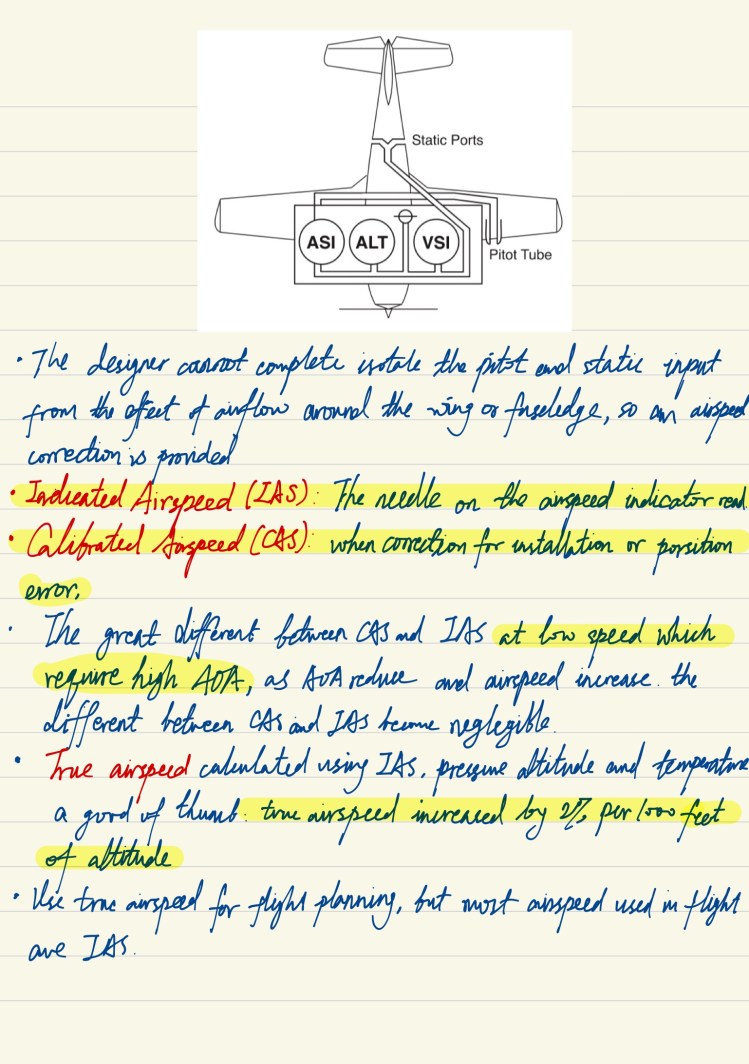 Static Ports
ASI
ALT
VSI
Pitot Tube
• The designer cannot complete isotale the pitot and static input
from the effect of airflow around the wing or fuseledge, so an airspeed
correction is provided
• Indicated Airspeed (IAS): The needle on the airspeed indicator read.
• Calibrated Airspeed (CAS): when correction for installation or porsition
error.
• The great different between CAS and IAS at low speed which
require high AOA, as AOA reduce and airspeed increase. the
different between CAS and IAS become neglegible.
• True airspeed calculated using IAS, pressure altitude and temperature
a good of thumb: true airspeed increased by 2% per 1000 feet
of altitude
• Use true airspeed for flight planning, but most airspeed used in flight
are IAS.